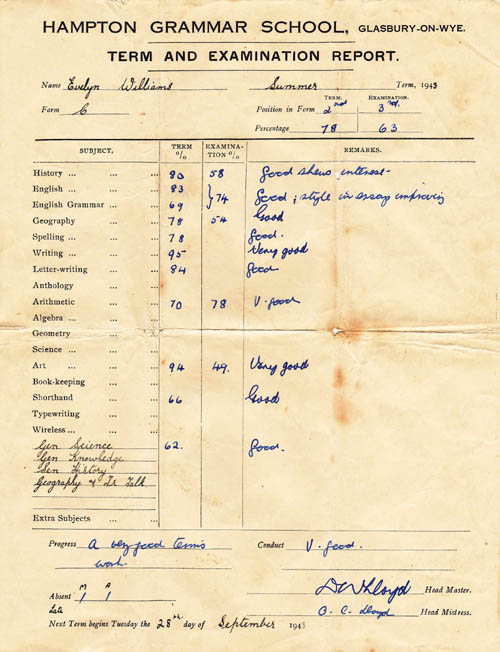 HAMPTON GRAMMAR SCHOOL, GLASBURY-ON-WYE.
TERM AND EXAMINATION REPORT.
Name Evelyn Williams Summer Term, 1943
TERM. EXAMINATION.
Form C Position in Form 2nd 3rd.
Percentage 78 63
SUBJECT. TERM % EXAMINATION % REMARKS.
History ... ... ... 80 58 Good shews interest-
English ... ... ... 83
74 Good; style in essay improving
English Grammar ... ... 69
Geography ... ... 78 54 Good
Spelling ... ... ... 78 Good.
Writing ... ... ... 95 Very good
Letter-writing ... ... 84 Good
Anthology ... ...
Arithmetic ... ... 70 78 V. good
Algebra ... ... ...
Geometry ... ...
Science ... ... ...
Art ... ... ... 94 49. Very good
Book-keeping ... ...
Shorthand ... ... 66 Good
Typewriting ... ...
Wireless ... ... ...
Gen. Science 62. Good.
Gen Knowledge
Gen History
Geography &
Extra Subjects ... ...
Progress A very good term's Conduct V. good.
work.
M A
Absent 1 1 Lloyd Head Master.
Late
O. C. Lloyd Head Mistress.
Next Term begins Tuesday the 28th. day of September 1943